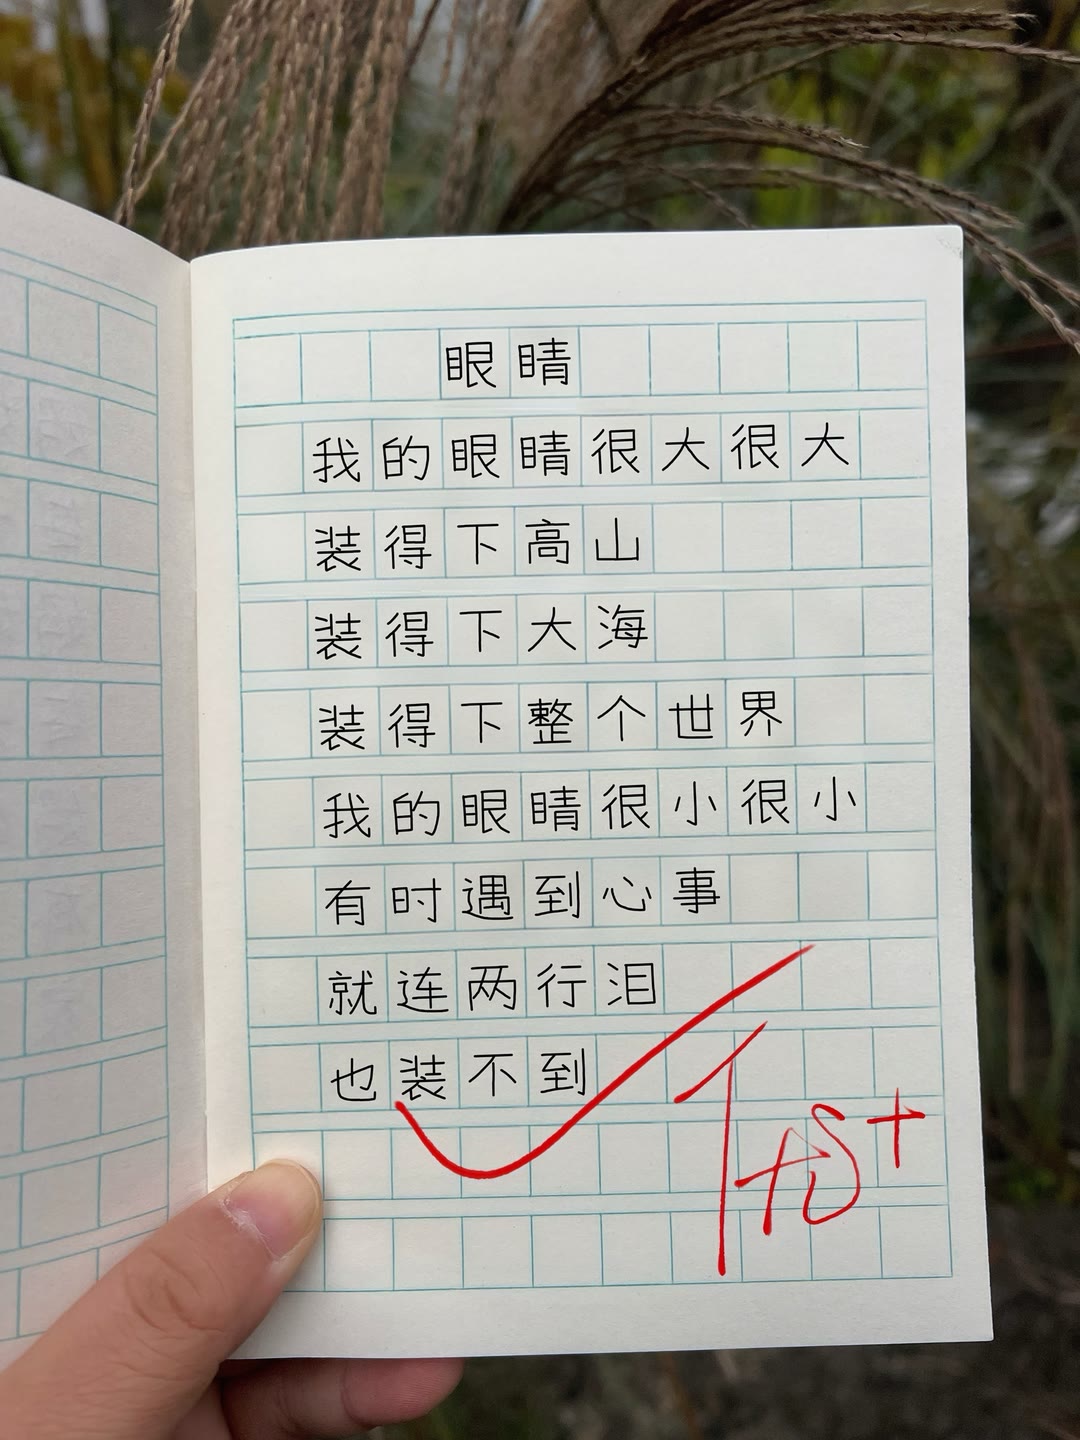 眼睛
我的眼睛很大很大
装得下高山
装得下大海
装得下整个世界
我的眼睛很小很小
有时遇到心事
就连两行泪
也装不到